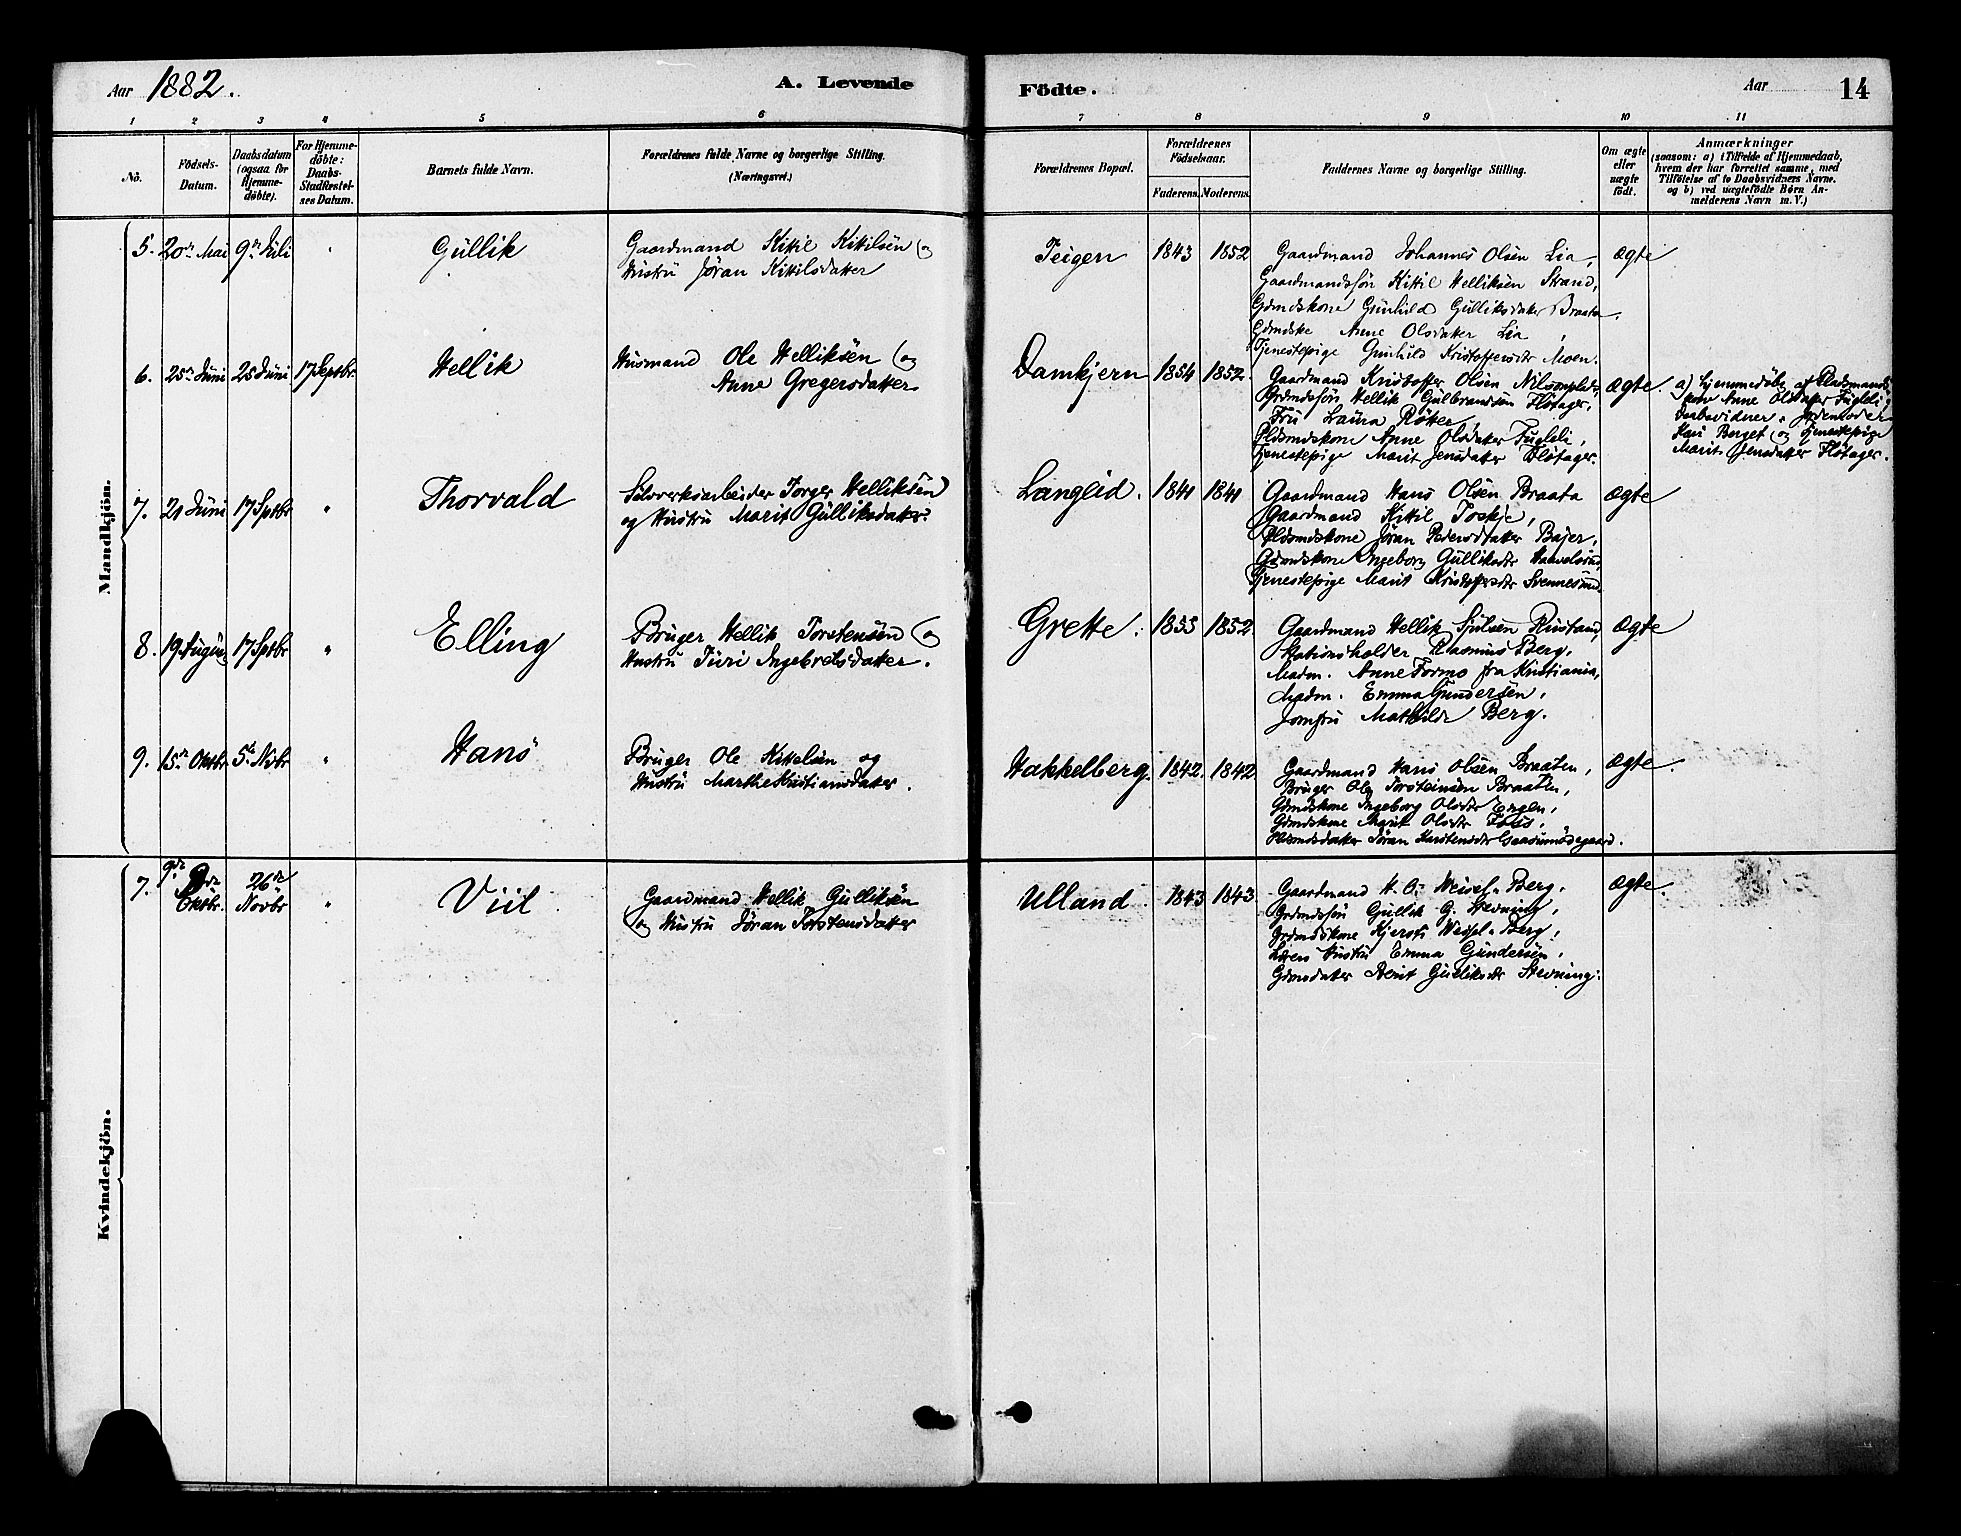 Aar 1882.
A. Levende
Födte.
Aar
14
1 2 3 4 5 6 7 8 9 10 11
Nö.
Födsels-
Datum.
Daabsdatum
(ogsaa for
Hjemme-
døbte).
For Hjemme-
døbte:
Daabs-
Stadfæstel-
ses Datum.
Barnets fulde Navn.
Forældrenes fulde Navne og borgerlige Stilling.
(Næringsvei.)
Forældrenes Bopæl.
Forældrenes
Födselsaar.
Faderens. Moderens.
Faddernes Navne og borgerlige Stilling.
Om ægte
eller
uægte
födt.
Anmærkninger
(saasom: a) i Tilfælde af Hjemmedaab,
hvem der har forrettet samme, med
Tilföielse af to Daabsvidners Navne.
og b) ved uægtefödte Børn An-
melderens Navn m. V.)
Mandkjön.
5. 20de Mai 9de Juli " Gullik
Gaardmand Kittil Kittilsen og
Hustru Jøran Kittilsdatter
Teigen 1843 1852
Gaardmand Johannes Olsen Lia,
Gaardmandssøn Kittil Helliksen Strand,
Grdmdskone Gunhild Gulliksdater Braata.
Grdmdske Anne Olsdater Lia,
Tjenestepige Gunhild Kristoffersdtr Moen.
ægte
6. 25de Juni 25 Juni 17 Septbr. Hellik
Husmand Ole Helliksen og
Anne Gregersdatter
Damkjern 1854 1852.
Gaardmand Kristoffer Olsen Nilsmplads
Grdmdssøn Hellik Gulbrandsen Flötager,
Fru Laura Røker,
Pldsmdskone Anne Olsdater Fugleli,
Tjenestepige Marit Jensdatter Flötager.
ægte.
a) Hjemmedøbt af Pladsmands
kone Anne Olsdater Fugleli,
Daabsvidner: Jordemoder
Kari Berget og Tjenestepige
Marit Jensdatter Flötager.
7. 21 Juni 17 Sptbr " Thorvald
Sølvverksarbeider Torger Helliksen
og Hustru Marit Gulliksdater.
Langlid. 1841 1841
Gaardmand Hans Olsen Braata
Gaardmand Kittil Toskje,
Pldsmdskone Jøran Pedersdtater Bajer,
Grdmdskone Ingeborg Gulliksdtr
Tjenestepige Marit Kristoffersdtr Svennesund.
ægte
8. 19 August 17 Sptbr " Elling
Bruger Hellik Torstensen og
Hustru Turi Ingebretsdater.
Grette. 1855 1852
Gaardmand Hellik Sjulsen Rustand,
Stationsholder Rasmus Berg.
Madm. Anne Formo fra Kristiania,
Madm. Emma Gundersen,
Jomfru Mathilde Berg.
ægte
9. 15de Oktbr. 5te Novbr " Hans
Bruger Ole Kittelsen og
Hustru Marthe Kristiansdater.
Hakkelberg. 1842. 1842
Gaardmand Hans Olsen Braaten,
Bruger Ole Torsteinsen Braaten,
Grdmdskone Ingeborg Olsdtr Engen,
Grdmdskone Marit Olsdtr Foss,
Pldsmdsdatter Jøran Karstensdtr
ægte.
Kvindekjön.
7. 9de
Oktbr.
26de
Novbr " Viil
Gaardmand Hellik Gulliksen
og Hustru Jøran Torstensdatter
Ulland. 1843 1843
Gaardmand H. G. Berg.
Grdmdssøn Gullik G. Stevning,
Grdmdskone Kjersti Berg,
Lærers Hustru Emma Gundersen,
Grdmdater Berit Gulliksdtr Stevning.
ægte.